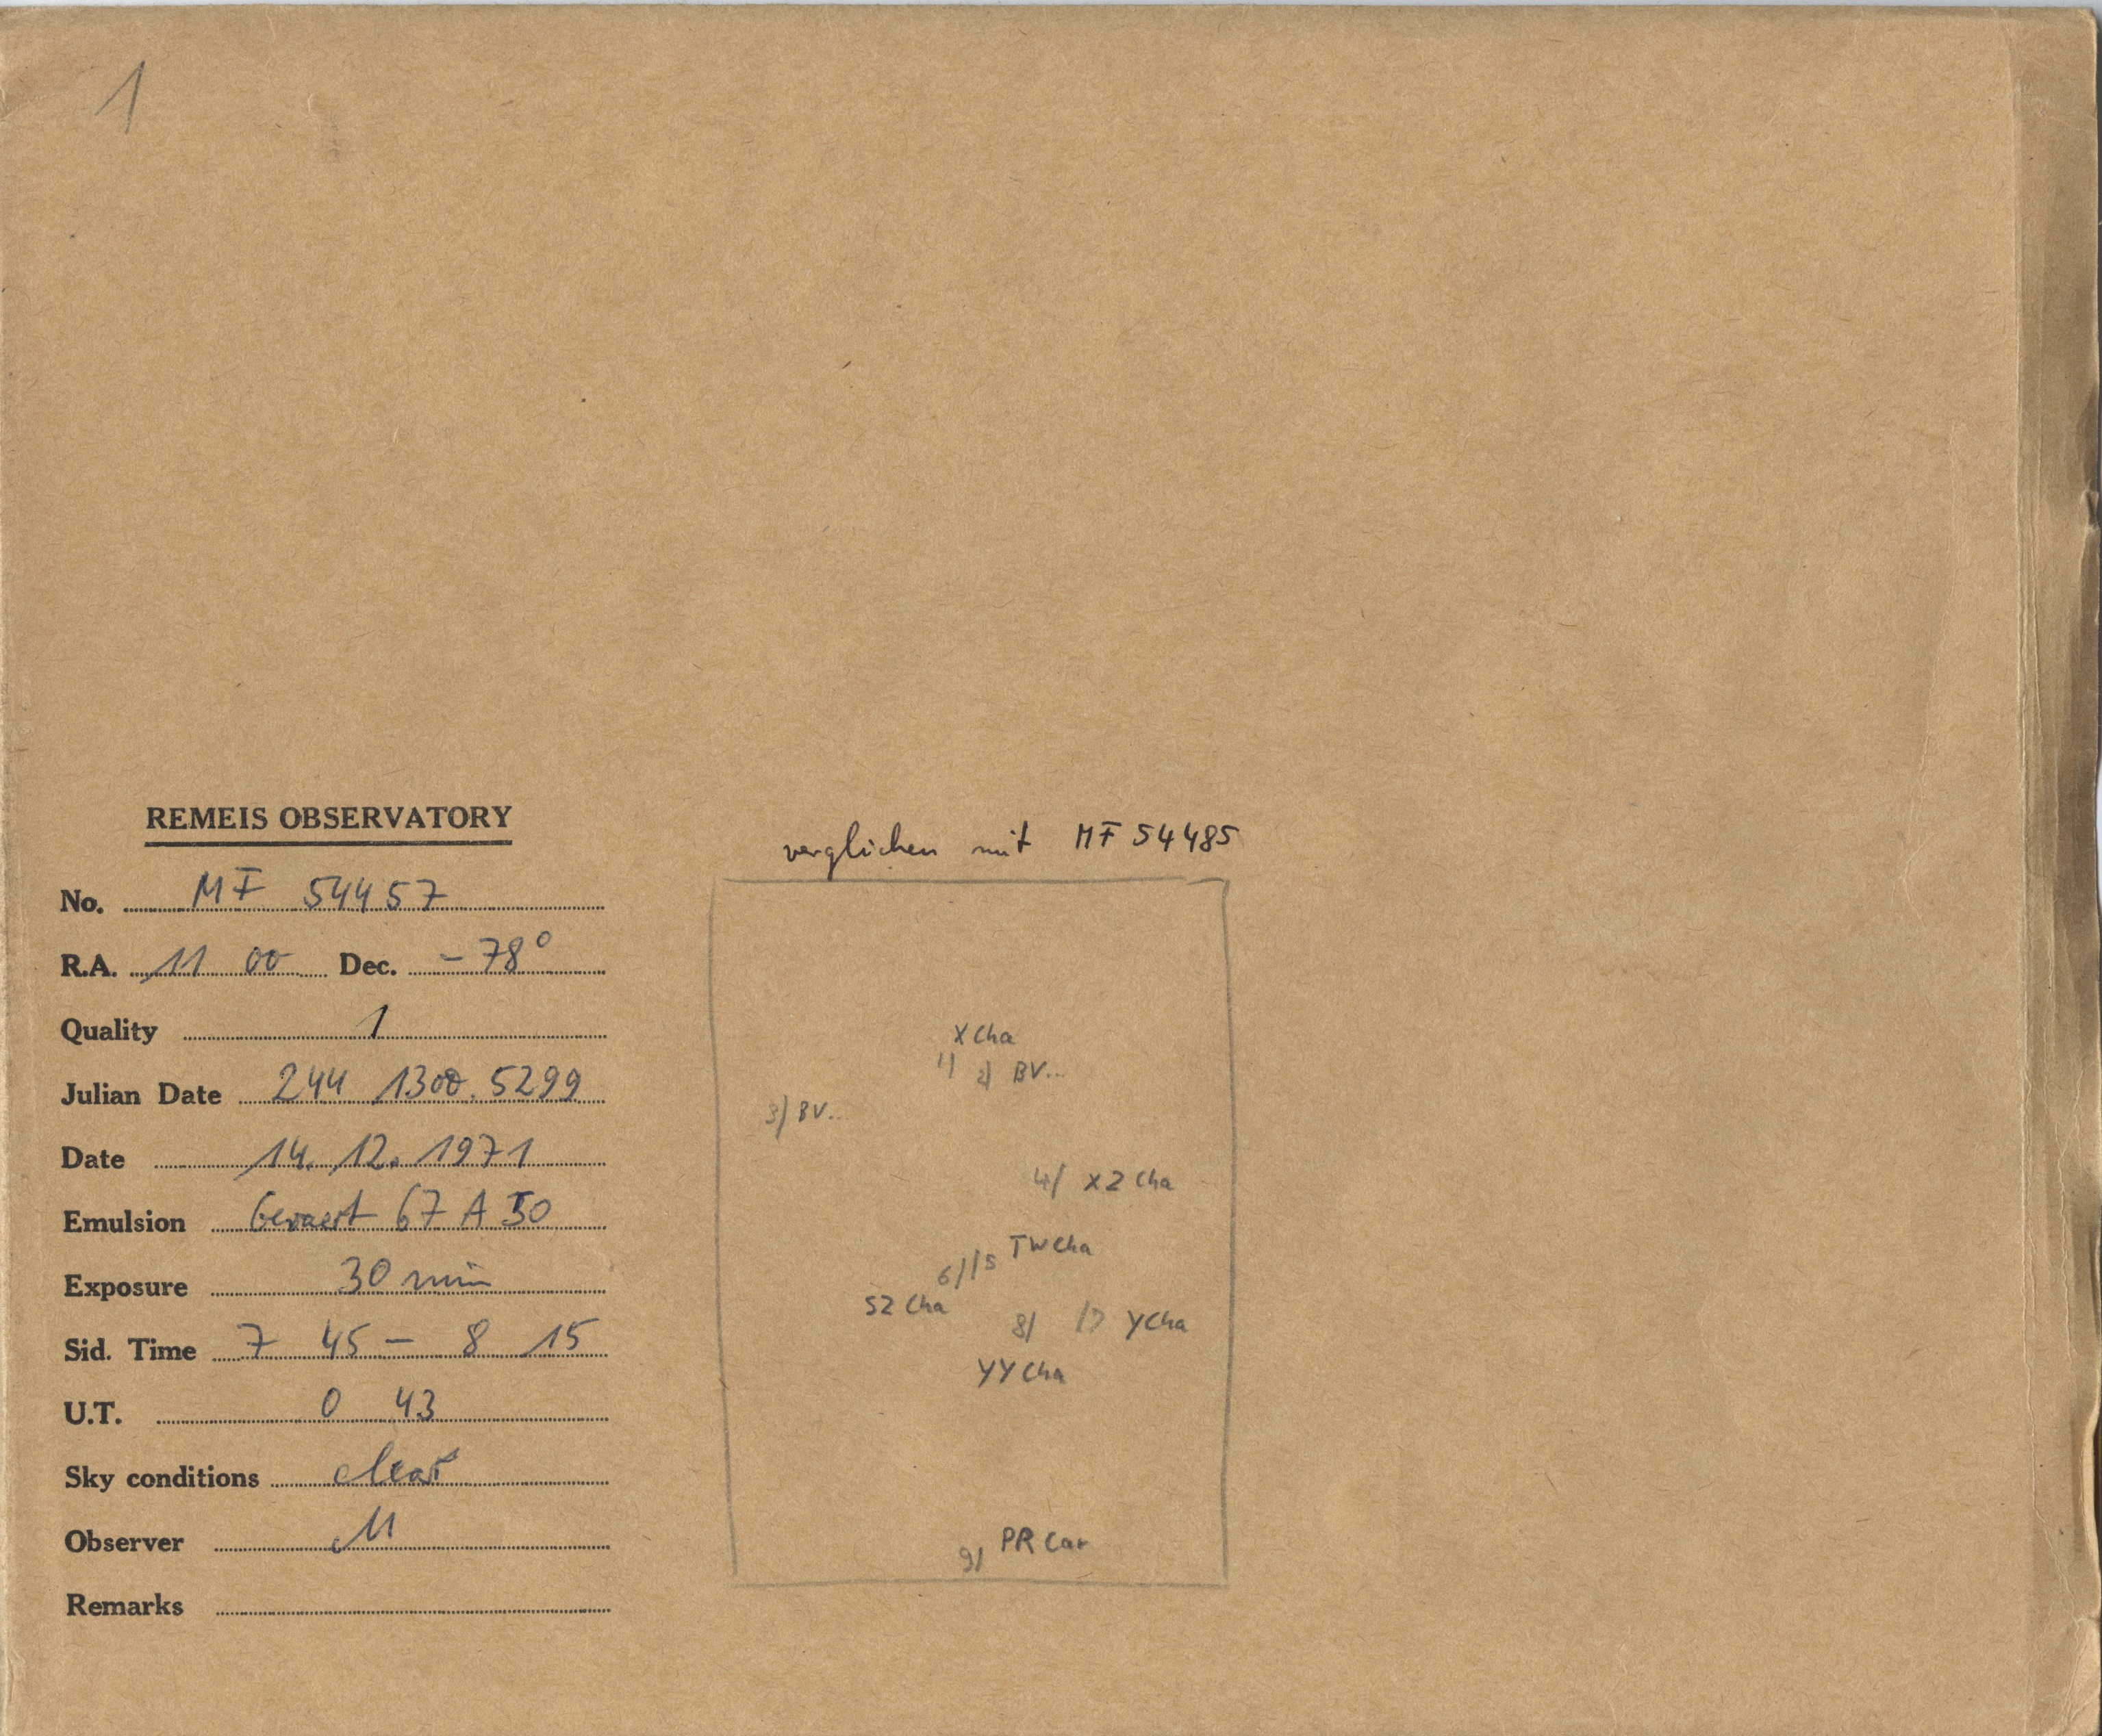 1
REMEIS OBSERVATORY
No. MF 54457
R.A. 11 00 Dec. -78°
Quality 1
Julian Date 244 1300.5299
Date 14. 12. 1971
Emulsion Gevaert 67 A 50
Exposure 30 min
Sid. Time 7 45 - 8 15
U.T. 0 43
Sky conditions clear
Observer M
Remarks
verglichen mit MF 54485
X Cha
1) 2) BV...
3) BV...
4) XZ Cha
TW Cha
6) 5
SZ Cha
8) 7 Y Cha
YY Cha
PR Car
9)